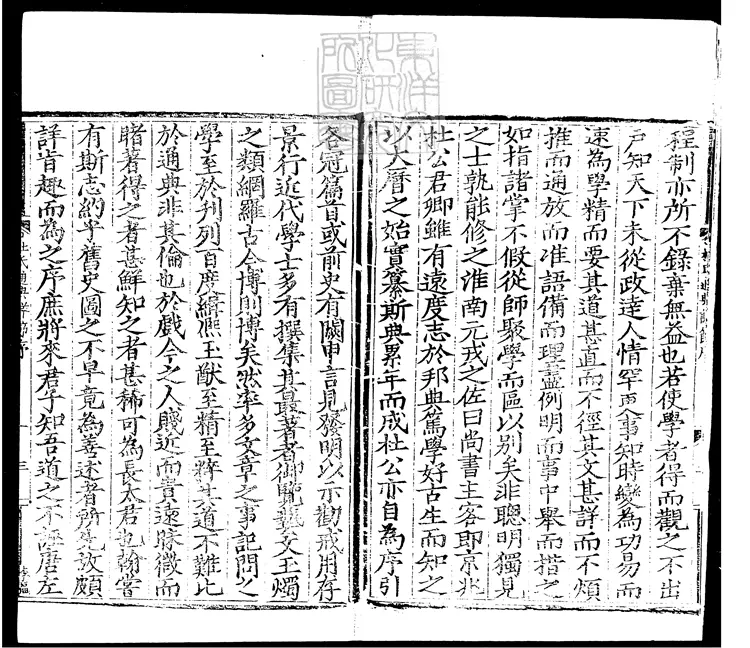 程制亦所不錄棄無益也若使學者得而觀之不出
戶知天下未從政達人情罕更事知時變為功易而
速為學精而要其道甚直而不徑其文甚詳而不煩
推而通放而准語備而理盡例明而事中舉而措之
如指諸掌不假從師聚學而區以別矣非聰明獨見
之士孰能修之淮南元戎之佐曰尚書主客郎京兆
杜公君卿雖有遠度志於邦典篤學好古生而知之
以大曆之始實纂斯典累年而成杜公亦自為序引
各冠篇首或前史有闕申言見發明以示勸戒用存
景行近代學士多有撰集其最著者御覽藝文玉燭
之類網羅古今博則博矣然率多文章之事記問之
學至於刊列百度緝熙王猷至精至粹其道不難比
於通典非其倫也於戲今之人賤近而貴遠昧微而
睹著得之者甚鮮知之者甚稀可為長太君也翰嘗
有斯志約乎舊史圖之不早竟為善述者所先故頗
詳旨趣而為之序庶將來君子知吾道之不誣唐左